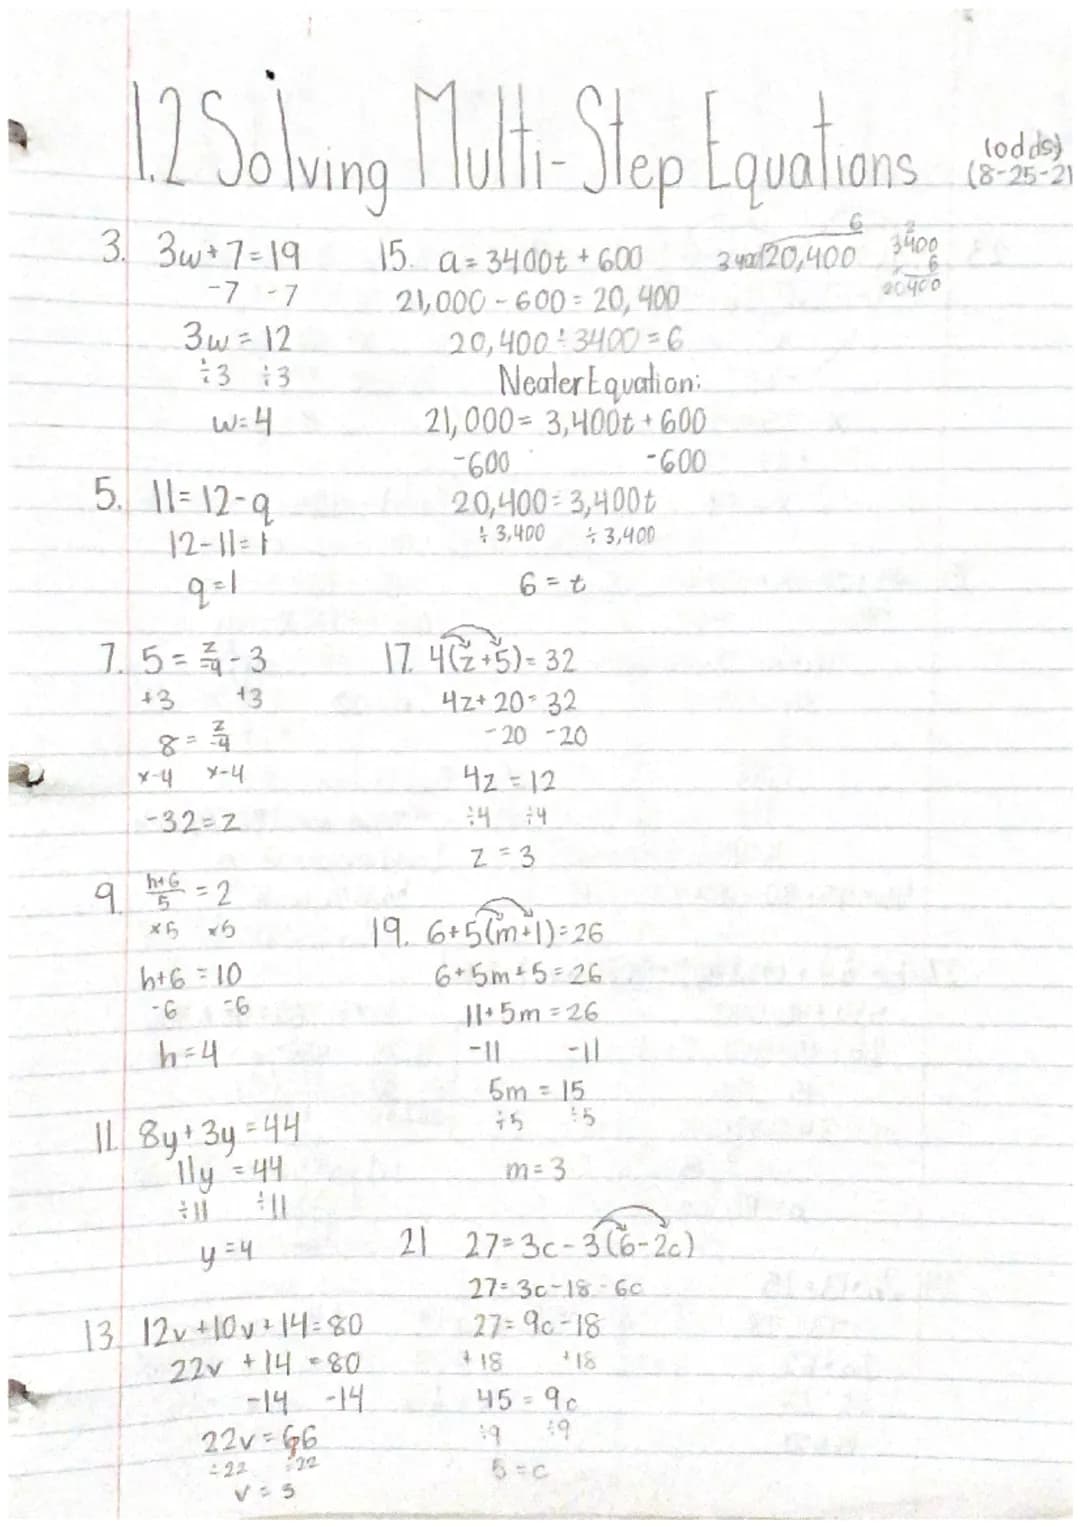 1.2 Solving Multi-Step Equations (odds)
(8-25-21
3. 3w+7=19
-7 -7
3w=12
÷3 ÷3
w=4
5. 11=12-q
12-11=1
q=1
7. 5=z/-4-3
+3 +3
8=z/-4
x-4 x-4
-32=z
9. h+6/5=2
x5 x5
h+6=10
-6 -6
h=4
11. 8y+3y=44
11y=44
÷11 ÷11
y=4
13. 12v+10v+14=80
22v+14=80
-14 -14
22v=66
÷22 ÷22
v=3
15. a=3400t+600
21,000-600=20,400
20,400÷3400=6
Neater Equation:
21,000=3,400t+600
-600 -600
20,400=3,400t
÷3,400 ÷3,400
6=t
6
3400 20,400
2
3400
6
20400
17. 4(z+5)=32
4z+20=32
-20 -20
4z=12
÷4 ÷4
z=3
19. 6+5(m+1)=26
6+5m+5=26
11+5m=26
-11 -11
5m=15
÷5 ÷5
m=3
21 27=3c-3(6-2c)
27=3c-18-6c
27=9c-18
+18 +18
45=9c
÷9 ÷9
5=c